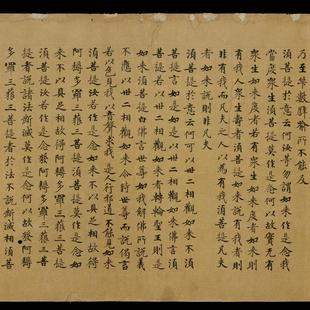 乃至筭數譬喻所不能及
須菩提於意云何汝等勿謂如來作是念我
當度衆生須菩提莫作是念何以故實无有
衆生如來度者若有衆生如來度者如來則
有我人衆生壽者須菩提如來說有我者則
非有我而凡夫之人以為有我須菩提凡夫
者如來說則非凡夫
須菩提於意云何可以卅二相觀如來不須
菩提言如是如是以卅二相觀如來佛言須
菩提若以卅二相觀如來者轉輪聖王則是
如來須菩提白佛言世尊如我解佛所說義
不應以卅二相觀如來尒時世尊而說偈言
若以色見我 以音聲求我 是人行邪道 不能見如來
須菩提汝若作是念如來不以具足相故得
阿耨多羅三藐三菩提須菩提莫作是念如
來不以具足相故得阿耨多羅三藐三菩提
須菩提汝若作是念發阿耨多羅三藐三菩
提者說諸法斷滅莫作是念何以故發阿耨
多羅三藐三菩提者於法不說斷滅相須菩